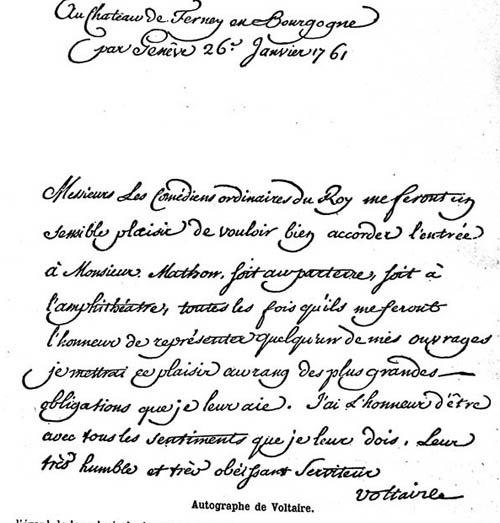 Au Chateau de Ferney en Bourgogne
par Genêve 26.e Janvier 1761
Messieurs Les Comédiens ordinaires du Roy me feront un
sensible plaisir de vouloir bien accorder l'entrée
à Monsieur Mathon, soit au parterre, soit à
l'amphithéatre, toutes les fois qu'ils me feront
l'honneur de représenter quelqu'un de mes ouvrages
je mettrai ce plaisir au rang des plus grandes
obligations que je leur aie. J'ai L'honneur d'être
avec tous les sentiments que je leur dois. Leur
très humble et très obéissant Serviteur
Voltaire
Autographe de Voltaire.